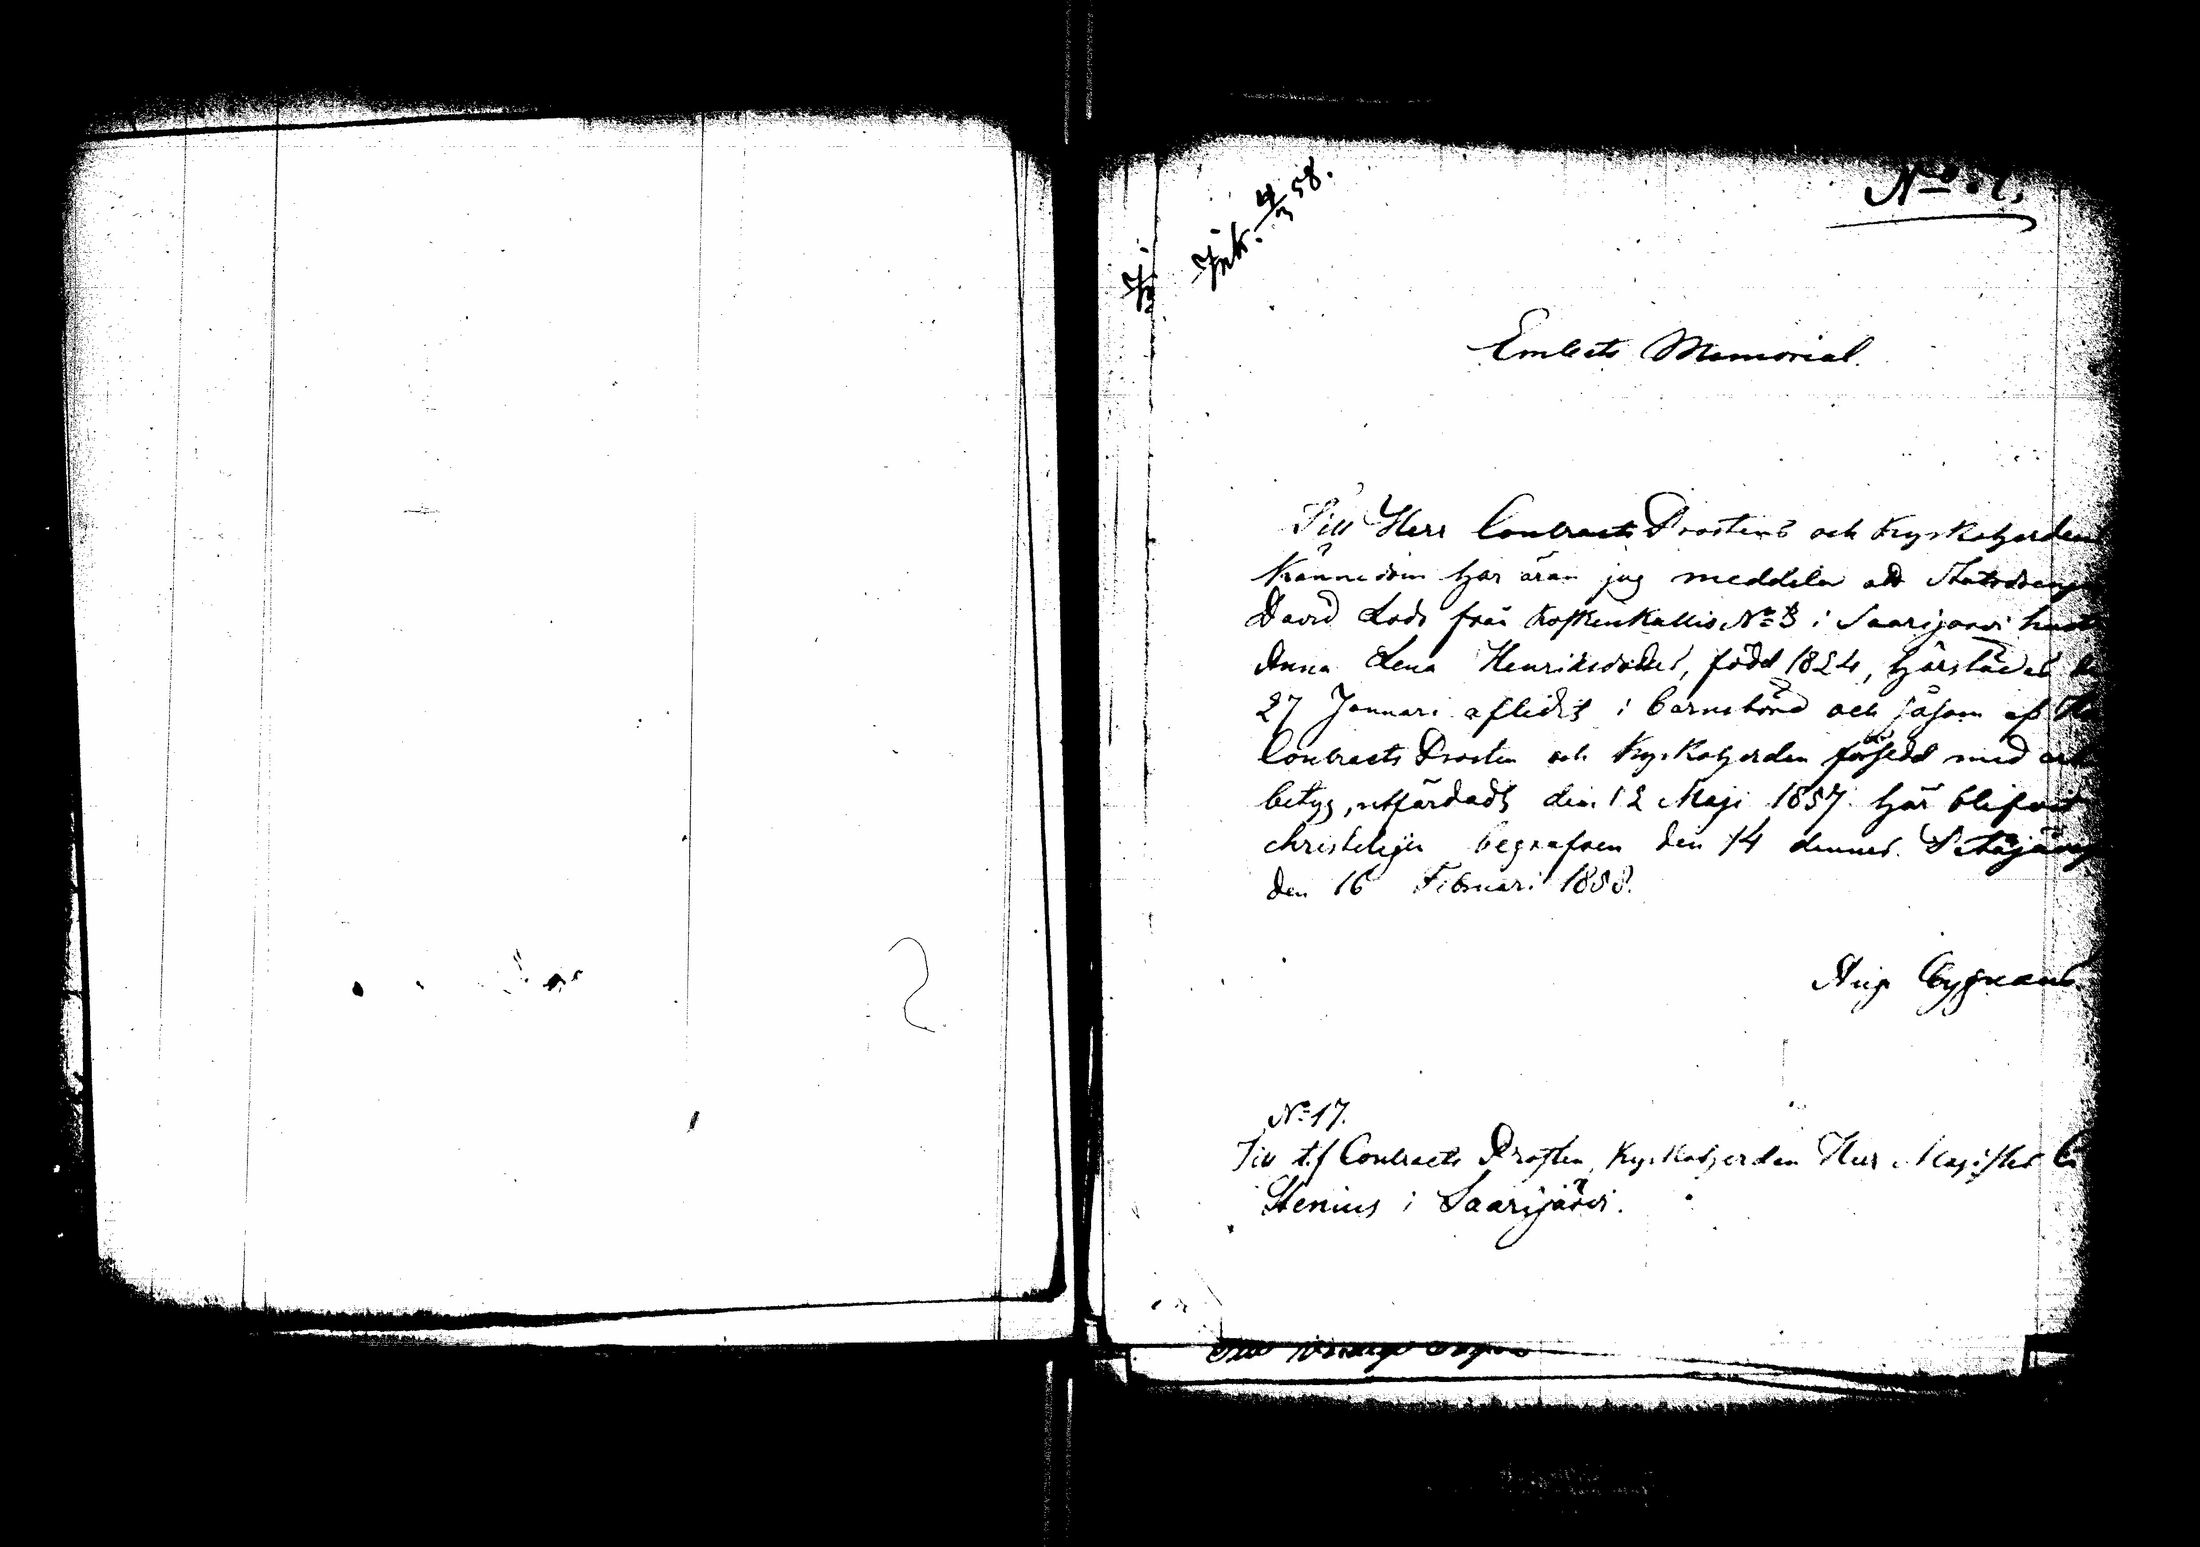 Ink. 4/3 58.
Embets Memorial.
Till Herr Contracts Prostens och Kyrkoherdens
kännedom har äran jag meddela att
David Lods från Koskenkallio No 3 i Saarijärvi
Anna Lena Henriksdotter, född 1824, härstädes
27 Januari aflidit i barnsbörd och såsom af
Contracts Prosten och Kyrkoherden försedd med
betyg, utfärdadt den 12 Maji 1857 här blifvit
christeligen begrafven den 14 dennes.
den 16 Februari 1858.
Aug Cygnæus
No 17.
Till t.f Contracts Prosten, Kyrkoherden Herr Magister
Stenius i Saarijärvi.